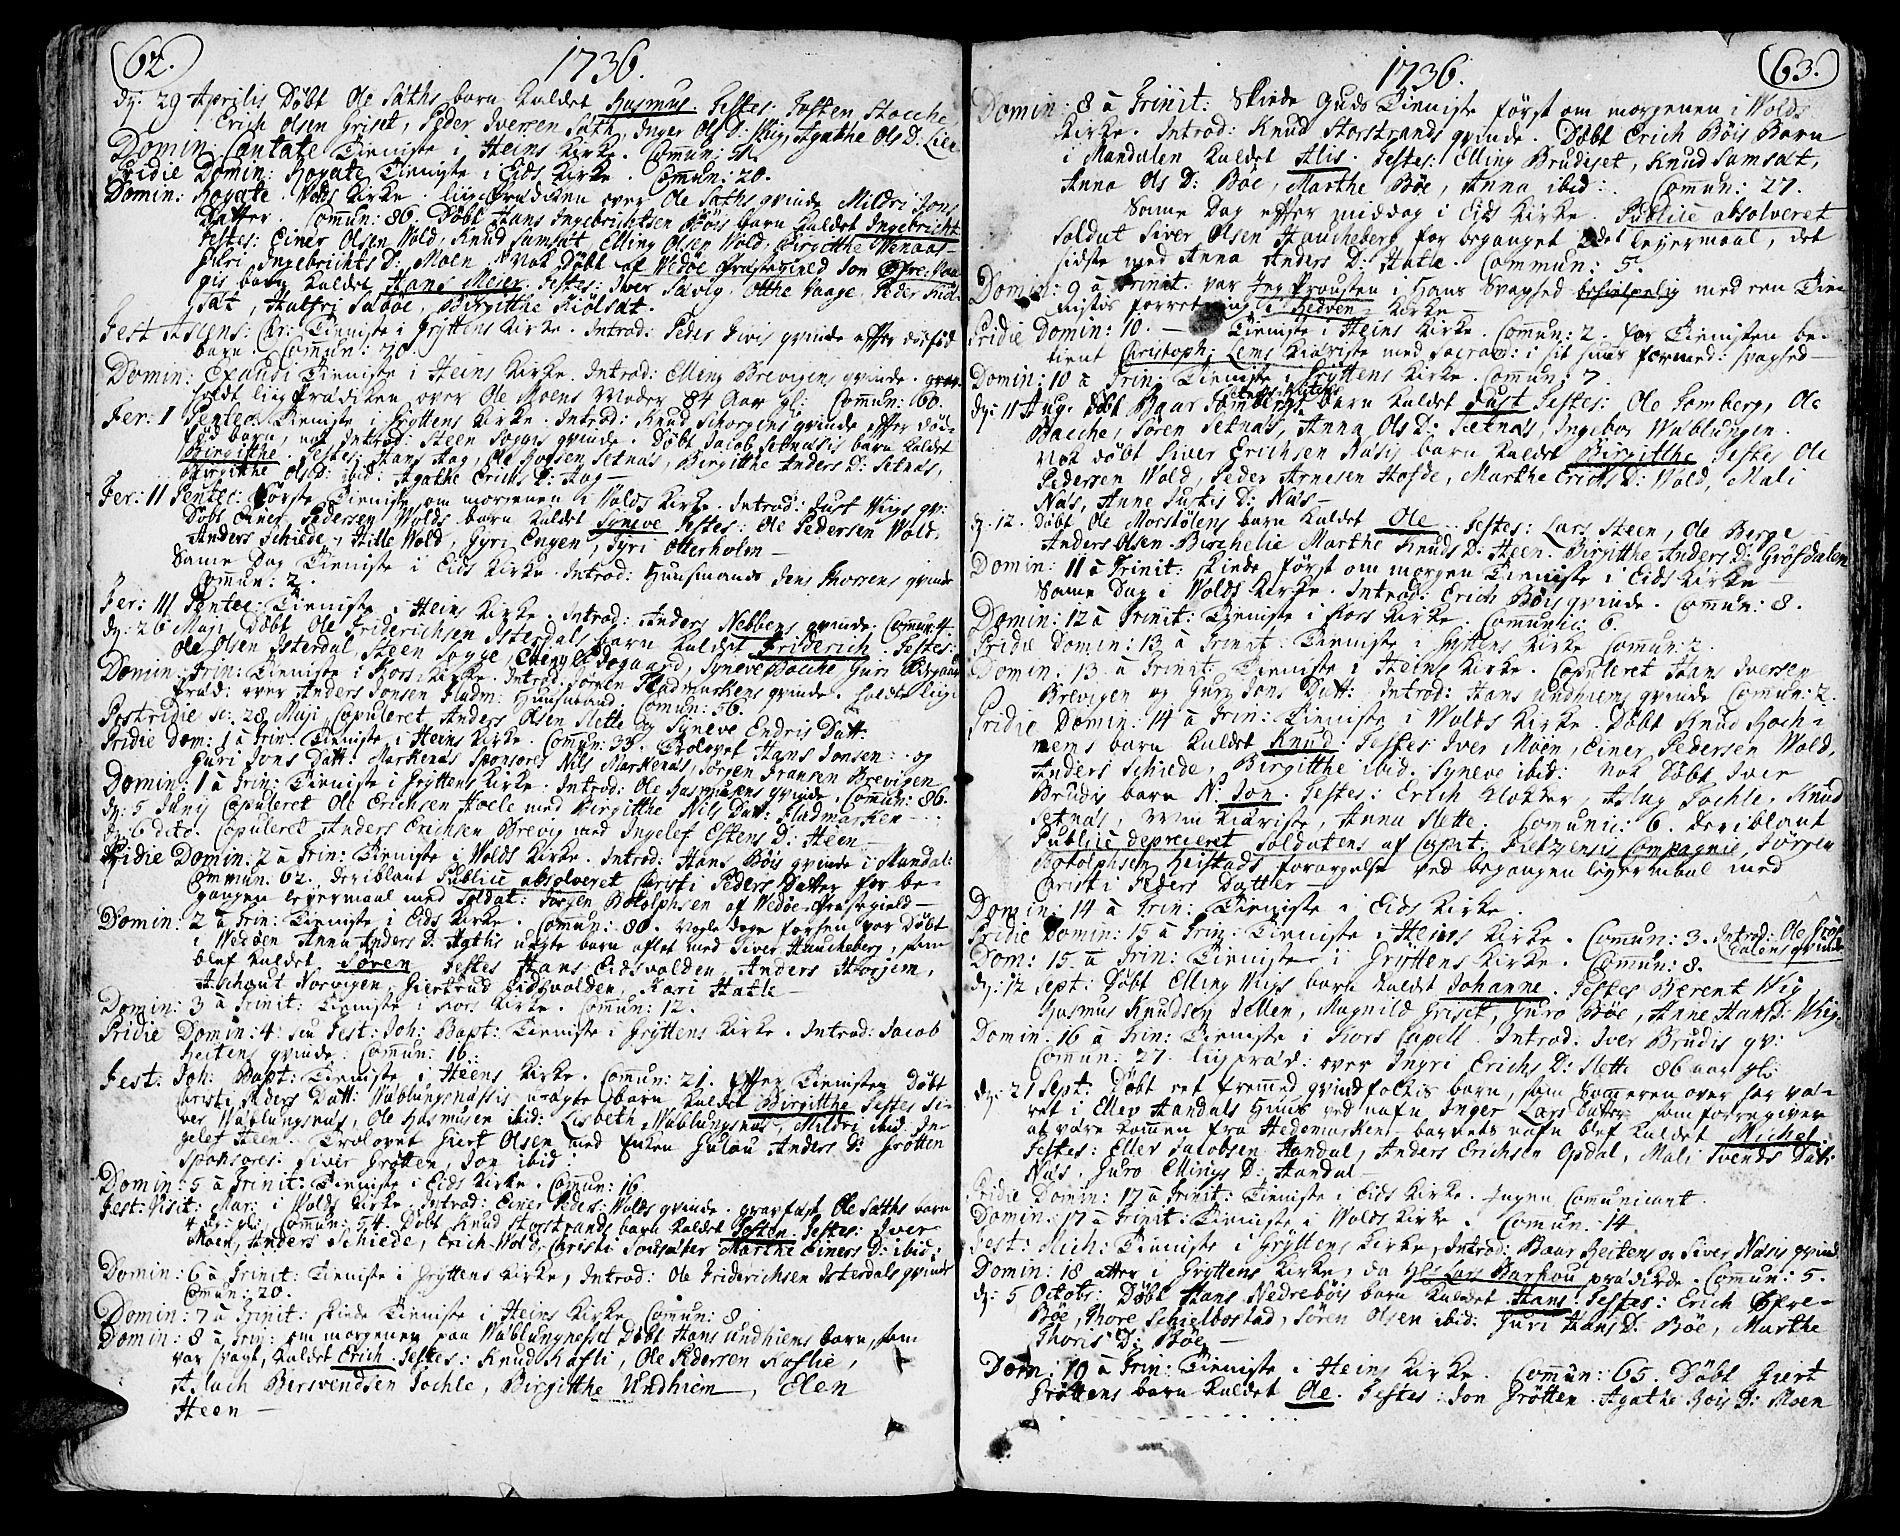 62.
1736.
dj: 29 Aprilis Døbt Ole Sæths barn kaldet Rasmus. Testes: Torsten Stocche,
Erich Olsen Griset, Peder Iversen Sæth, Inger Ols D: Wiig, Agathe Ols D: Lien
Domin: Cantate Tieniste i Heens Kirke. Comun: 51.
Pridie Domin: Rogate Tieniste i Eids Kirke. Comun: 20.
Domin: Rogate Wolds Kirke. Liigprædiken over Ole Sæths qvinde Mildri Jons
Datter. Comun: 86. Døbt Hans Ingebrichtsen Bøis barn kaldet Ingebricht
Testes: Einer Olsen Wold, Knud Samsæt, Elling Olsen Wold, Birgitthe Wenaas,
Guri Ingebrichts D: Moen. Nok Døbt af Wedøe Præstegield Jon Øfre
gis barn kaldet Hans Meier. Testes: Iver Sævig, Otthe Vaage, Peder
sæt, Birgitthe Kiølsæt.
Fest: Ascens: Chr: Tieniste i Gryttens Kirke. Introd: Peder qvinde effter dødfød
barn. Comun: 20.
Domin: Exaudi Tieniste i Heens Kirke. Introd: Elling Brevigens qvinde.
holdt liigprædiken over Ole Moens Moder 84 Aar gl: Comun: 60.
Fer: 1 Pentec: Tieniste i Gryttens Kirke. Introd: Knud Skorgens qvinde effter død-
fød barn, nok Introd: Steen Sogges qvinde. Døbt Jacob Setnæsis barn kaldet
Birgitthe. Testes: Hans Aag, Ole Setnæs, Birgitthe Anders D: Setnæs,
Birgitthe Ols D: ibid: Agathe Erichs D: Aag
Fer: 11 Pentec: Første Tieniste om morgenen i Wolds Kirke. Introd: Just Wiigs qv:
Døbt Einer Pedersen Wolds barn kaldet Syneve Testes: Ole Pedersen Wold,
Anders Schiede, Hille Wold, Gyri Engen, Gyri Otterholm
Same Dag Tieniste i Eids Kirke. Introd: Huusmands Jens Thorsens qvinde
Comun: 2.
Fer: 111 Pentec: Tieniste i Heens Kirke. Introd: Anders Nebbens qvinde. Comun: 4.
dj: 26 Maji Døbt Ole Friderichsen Isterdals barn kaldet Friderich. Testes:
Ole Olsen Isterdal, Steen Sogge, Syneve Bacche
Domin: Trin: Tieniste i Kors Kirke. Introd. Jørgen Fladmarkens qvinde. holdt liig-
præd: over Anders Jonsen Fladm: Huusmand. Comun: 56.
Postridie sc: 28 Maji, Copuleret Anders Olsen Slette og Syneve Endris Datt:
Pridie dom: 1 a Trin: Tieniste i Heens Kirke. Comun: 33. Trolovet Hans Jonsen: og
Guri Jons Datt: Markenæs Sponsores Nils Markenæs, Jørgen Fransen Brevigen
Domin: 1 a Trin: Tieniste i Gryttens Kirke. Introd: Ole Rasmusens qvinde. Comun: 86.
dj: 5 Junij Copuleret Ole Erichsen Hoele med Birgitthe Nils Datt: Fladmarken
dj: 6 dito. Copuleret Anders Erichsen Brevig med Ingelef Estens D: Heen
Pridie Domin. 2 a Trin: Tieniste i Wolds Kirke. Introd: Hans Bøis qvinde i Mandal:
Comun. 62. deriblant Publice absolveret Christi Peders Datter for be-
gangen leyermaal med Soldat: Jørgen Botolphsen af Wedøe Præstegield
Domin: 2 a Trin: Tieniste i Eids Kirke. Comun: 80. Nogle dage forhen var Døbt
i Wedøen Anna Anders D: Hatlis uægte barn aflet med Siver Haucheberg, som
blef kaldet Søren Testes Hans Eidsvolden, Anders Horjem,
Aschaut Norvigen, Giertrud Eidsvolden, Kari Hatle
Domin: 3 a Trinit: Tieniste i Kors Kirke. Comun: 12.
Pridie Domin: 4: seu Fest: Joh: Bapt: Tieniste i Gryttens Kirke. Introd: Jacob
Reitens qvinde. Comun: 16.
Fest: Joh: Bapt: Tieniste i Heens Kirke. Comun: 21. Effter Tienisten Døbt
Christi Peders Datt: Wæblungnæssis uægte barn kaldet Birgitthe Testes Si-
ver Wæblungsnæs, Ole Rasmusen ibid: Lisbeth Wæblungsnæs, Mildri ibid: In-
gelef Heen. Trolovet Giert Olsen med Enken Gulau Anders D: Grøtten
Sponsores: Siver Grøtten, Jon ibid:
Domin: 5 a Trinit: Tieniste i Eids Kirke. Comun: 16
Fest: Visit: Mar: i Wolds Kirke. Introd: Einer Peders: Wolds qvinde. gravfæst Ole Sæths barn
Comun: 54. Døbt Knud Storstrands barn kaldet Torsten. Testes: Iver
Moen, Anders Schiede, Erich Wold, Christi Marthe Einers D: ibid:
Domin: 6 a Trinit: Tieniste i Gryttens Kirke, Introd: Ole Friderichsen Isterdals qvinde
Comun: 20.
Domin: 7 a Trinit: skeede Tieniste i Heens Kirke. Comun: 8
Domin: 8 a Trin: om morgenen paa Wæblungnesset Døbt Hans Undhiems barn, som
var svagt, kaldet Erich. Testes: Knud Kafli, Ole Pedersen Kaflie,
Aslach Bersvendsen Sochle, Birgitthe Undhiem, Elen
Heen
63.
1736.
Domin: 8 a Trinit: Skeede Guds Tieniste først om morgenen i Wolds
Kirke. Introd: Knud Storstrands qvinde. Døbt Erich Bøis Barn
i Mandalen kaldet Alis. Testes: Elling Brudeset, Knud Samsæt,
Anna Ols D: Bøe, Marthe Bøe, Anna ibid: Comun: 27.
Same Dag effter middag i Eids Kirke. Publice absolveret
Soldat Siver Olsen Haucheberg for begaaget 2det leyermaal, det
sidste med Anna Anders D: Hatle. Comun: 5.
Domin: 9 a Trinit. var Jeg Provsten i Hans Svaghed med sen Tie-
nistis forretning i Redven Kirke
Pridie Domin: 10. Tieniste i Heens Kirke. Comun: 2. før Tienisten be-
tient Christoph: Lems Kiæriste med Sacram: i sit huus formed: svaghed
Domin: 10 a Trin: Tieniste i Gryttens Kirke. Comun: 7.
dj: 11 Aug: døbt Baar Sombergs barn kaldet Just Testes: Ole Somberg, Ole
Bacche, Søren Setnæs, Anna Ols D: Setnæs, Ingebor Wæblungen.
Nok døbt Siver Erichsen Næsis barn kaldet Birgitthe Testes Ole
Pedersen Wold, Peder Arnesen Hofde, Marthe Erichs D: Wold, Mali
Næs, Anne Justis D: Næs
dj: 12. Døbt Ole Morstølens barn kaldet Ole. Testes: Lars Steen, Ole Berge
Anders Olsen Birchelie Marthe Knuds D: Heen. Birgitthe Anders D: Grøfdalen
Domin: 11 a Trinit: Skeede først om morgen Tieniste i Eids Kirke
Same Dag i Wolds Kirke. Introd: Erich Bøis qvinde. Comun: 8.
Domin: 12 a Trinit: Tieniste i Kors Kirke. Comunic: 6.
Pridie Domin: 13 a Trinit: Tieniste i Gryttens Kirke Comun: 2
Domin: 13 a Trinit: Tieniste i Heens Kirke. Copuleret Hans Iversen
Brevigen og Guri Jons Datt: Introd: Hans Undhiems qvinde Comun: 2.
Pridie Domin: 14 a Trin: Tieniste i Wolds Kirke. Døbt Knud Roch-
nems barn kaldet Knud. Testes: Iver Moen, Einer Pedersen Wold,
Anders Schiede, Birgitthe ibid. Syneve ibid: Nok Døbt Iver
Brudis barn N. Jon. Testes: Erich Klokker, Aslag Sochle, Knud
Setnæs, min Kiæriste, Anna Slette. Comunic: 6. Deriblant
Publice depreceret Soldatens af Capit: Fietzensis Compagnie, Jørgen
Botolphsen Heistads forargelse ved begangen leyermaal med
Christi Peders Datter
Domin: 14 a Trin: Tieniste i Eids Kirke.
Pridie Domin: 15 a Trin: Tieniste i Heens Kirke. Comun: 3. Introd: Ole Grøf-
dalens qvinde
Dom: 15. a Trin: Tieniste i Gryttens Kirke. Comun: 8.
dj: 12 Sept: Døbt Elling Wiigs barn kaldet Johanne. Testes Berent Wiig
Rasmus Knudsen Sollen, Magnild Griset, Guro Bøe, Anne Hans D: Wiig.
Domin. 16 a Trin: Tieniste i Kors Capell. Introd. Iver Brudis qv:
Comun: 27. liigpræd: over Ingri Erichs D: Slette 86 aar gl:
dj: 21 Sept: Døbt eet fremmed qvindfolkis barn, som Someren over har væ-
ret i Ellev Aandals Huus ved nafn Inger Lars Datter som foregiver
at være kommen fra Hedemarken - barnets nafn blef kaldet Michel.
Testes: Ellev Jacobsen Aandal, Anders Erichsen Opdøl, Mali Svends Dat:
Næs. Guro Ellings D: Aandal
Pridie Domin: 17 a Trinit: Tieniste i Eids Kirke. Ingen Comunicant.
Domin: 17 a Trinit: Tieniste i Wolds Kirke. Comun: 14
Fest: Mich: Tieniste i Gryttens Kirke, Introd: Baar Reitens og Siver Næsis qvinde
Domin: 18 atter i Gryttens Kirke, da Hr Lars Barhou prædikede. Comun: 5.
dj: 5 Octobr: Døbt Hans Nedrebøis barn kaldet Hans. Testes: Erich Øfre-
Bøe, Thore Schielbostad, Søren Olsen ibid: Guri Hans D: Bøe, Marthe
Thoris D: Bøe
Dom: 19 a Trin: Tieniste i Heens Kirke. Comun: 65. Døbt Giert
Grøttens barn kaldet Ole. Testes: Jon Grøtten. Agathe Rois D: Moen